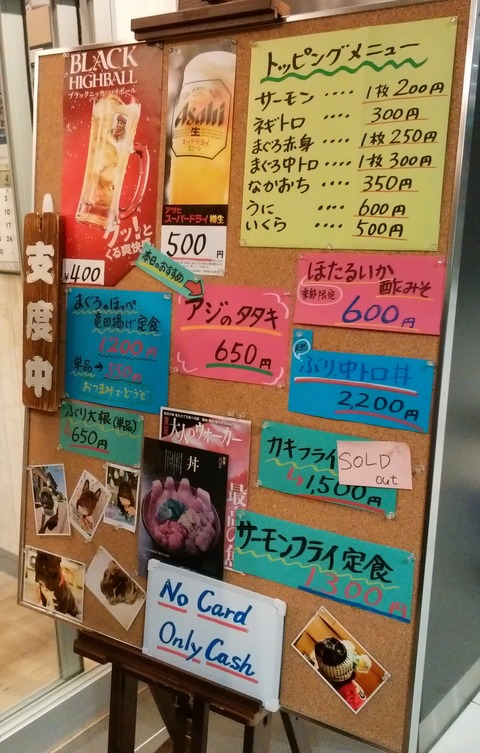 BLACK
HIGHBALL
ブラックニッカ ハイボール
クッ！と
くる爽快！
¥400
Asahi
生
アサヒ
スーパードライ 樽生
500円
トッピングメニュー
サーモン ・・・・ 1枚200円
ネギトロ ・・・・ 300円
まぐろ赤身 ・・・・ 1枚250円
まぐろ中トロ ・・・・ 1枚300円
なかおち ・・・・ 350円
うに ・・・・ 600円
いくら ・・・・ 500円
支度中
本日のおすすめ
まぐろのほっぺ
竜田揚げ定食
1200円
単品→
おつまみでどうぞ
アジのタタキ
650円
ほたるいか
季節限定
酢みそ
600円
ぶり中トロ丼
2,200円
ぶり大根(単品)
650円
大人のウォーカー
丼
カキフライ
1,500円
SOLD
out
サーモンフライ定食
1300円
No Card
Only Cash